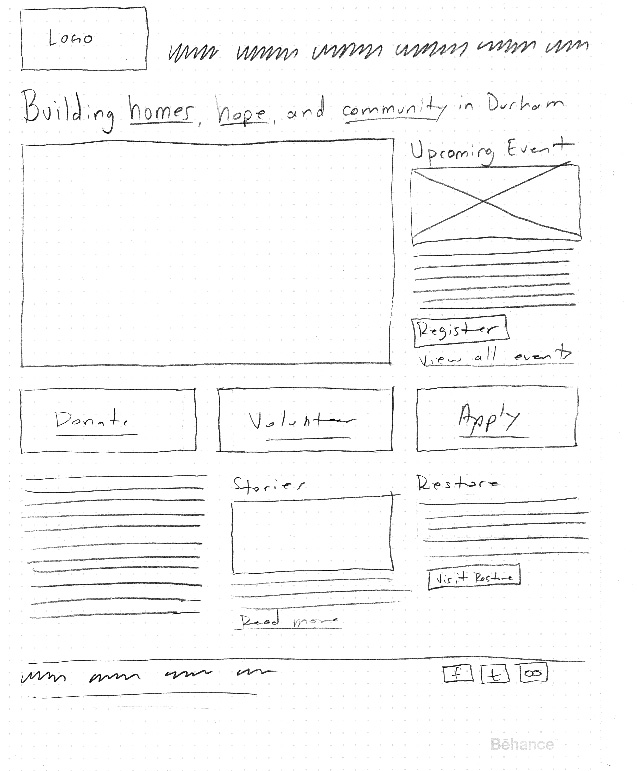 Logo
Building homes, hope, and community in Durham
Upcoming Event
Register
View all events
Donate
Volunteer
Apply
Stories
Restore
Visit Restore
Read more
f t
Bēhance